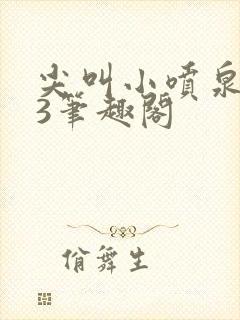 尖叫小喷泉
3笔趣阁
俏舞生